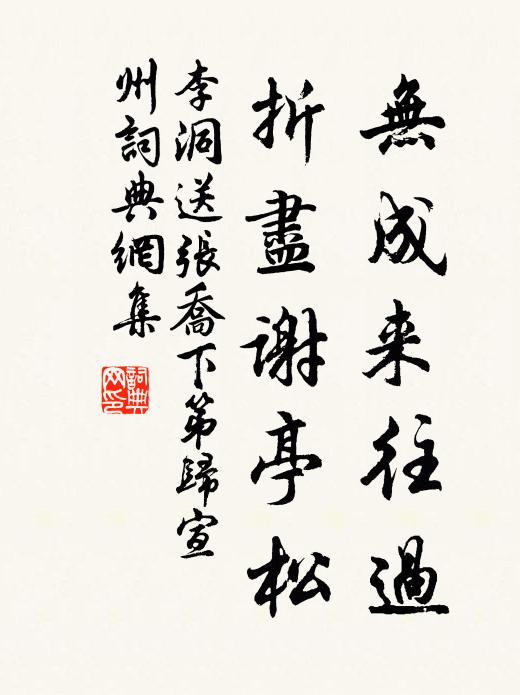 無成来往過
折盡謝亭松
李洞送張喬下第歸宣
州詞典網集
詞典网印